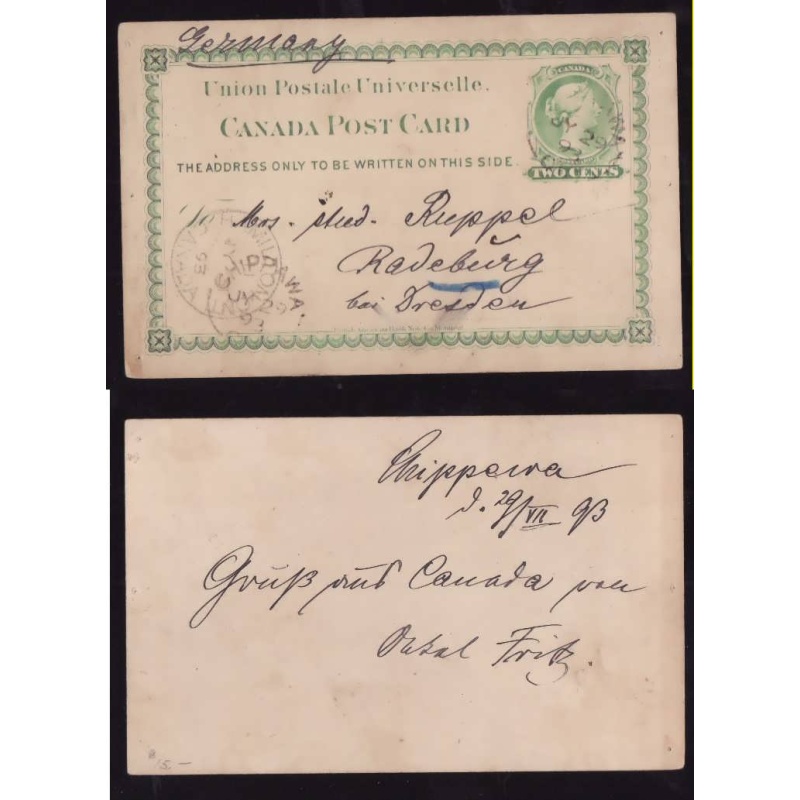 Germany
Union Postale Universelle.
CANADA POST CARD
THE ADDRESS ONLY TO BE WRITTEN ON THIS SIDE.
CANADA
TWO CENTS
JY 29
stud. Ruppel
Radeburg
bei Dresden
Chippewa
d. 29/VII 93
Gruß aus Canada von
Onkel Fritz.
5.–